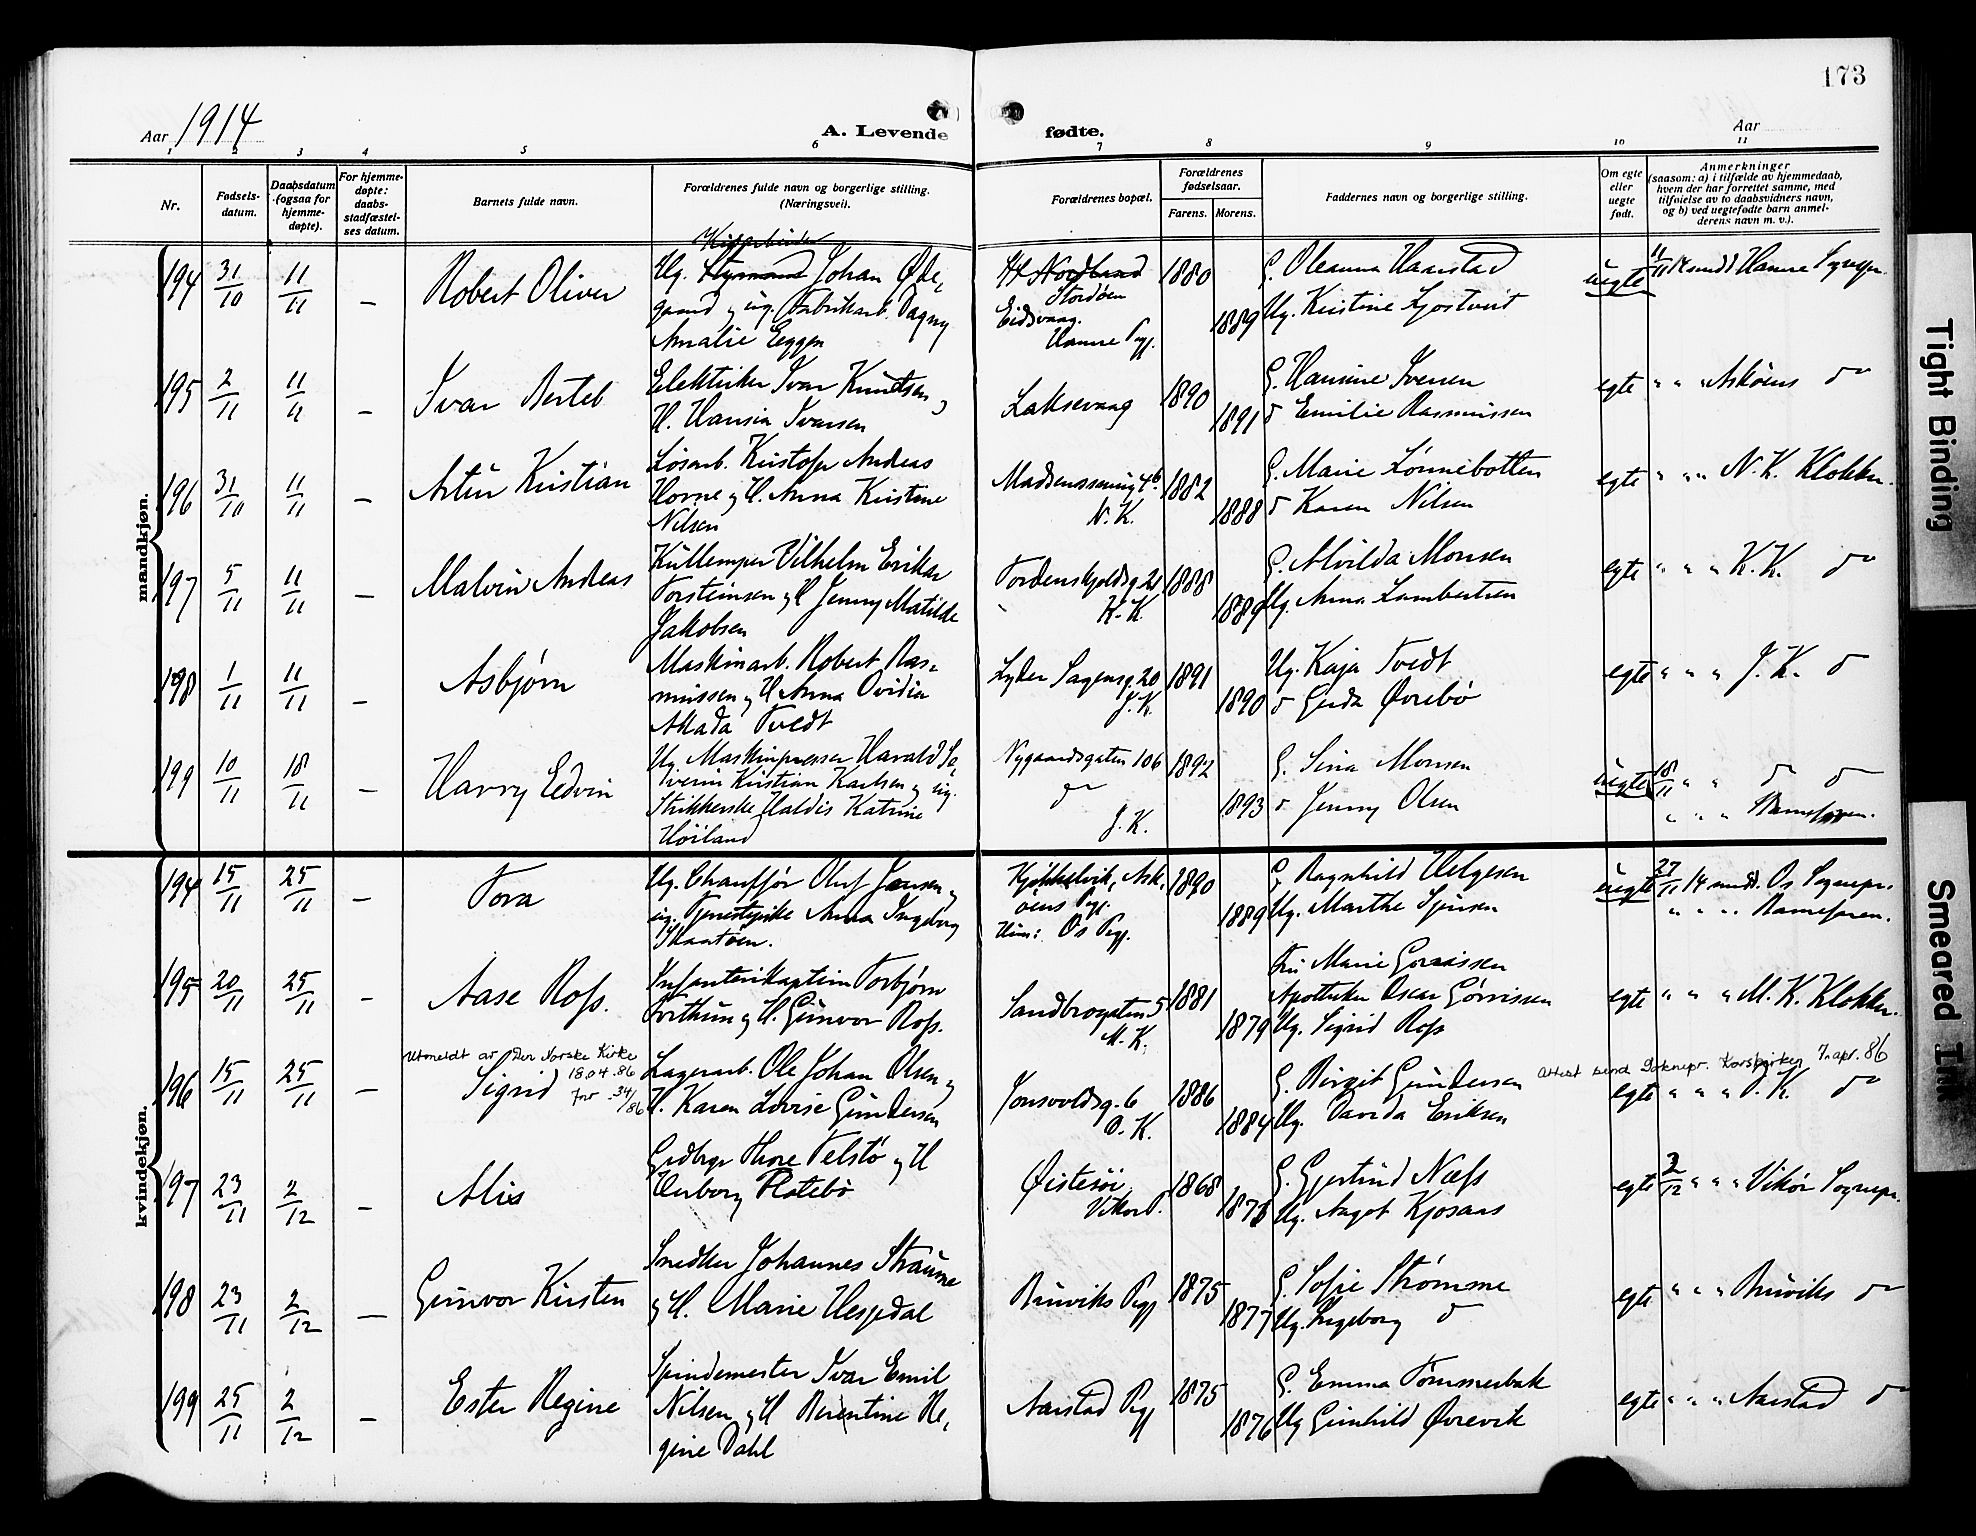 173
Aar 1914
A. Levende fødte.
Aar
1 2 3 4 5 6 7 8 9 10 11
Nr.
Fødsels-
datum.
Daabsdatum
(ogsaa for
hjemme-
døpte).
For hjemme-
døpte:
daabs-
stadfæstel-
ses datum.
Barnets fulde navn.
Forældrenes fulde navn og borgerlige stilling.
(Næringsvei).
Forældrenes bopæl.
Forældrenes
fødselsaar.
Farens. Morens.
Faddernes navn og borgerlige stilling.
Om egte
eller
uegte
født.
Anmerkninger
(saasom: a) i tilfælde av hjemmedaab,
hvem der har forrettet samme, med
tilføielse av to daabsvidners navn,
og b) ved uegtefødte barn anmel-
derens navn m. v.).
mandkjøn.
194 31/10 11/11 — Robert Oliver
Ug. Styrmand Johan Øde-
gaard og ug. Fabrikarb. Dagny
Amalie Eggen
Nordland
Stordøen
Eidsvaag.
Hamre Pgj.
1880 1889
G. Oleanna Haarstad
Ug. Kristine Ljostveit
uegte 11/11 14 medd Hamre Sognepr.
195 2/11 11/11 — Ivar Bertel
Elektriker Ivar Knudtsen og
H. Hansin Ivarsen
Laksevaag
1890 1891
G. Hansine Iversen
d Emilie Rasmussen
egte " " " Askøens do
196 31/10 11/11 — Artur Kristian
Løsarb. Kristofer Andreas
Horne og H. Anna Kristine
Nilsen
Madsensmug 46
N. K.
1882 1888
G. Marie Lønnebotten
d Karen Nilsen
egte " " " N. K. Klokker.
197 5/11 11/11 — Malvin Andreas
Kullemper Vilhelm Erikar
Torsteinsen og H Jenny Matilde
Jakobsen
Tordenskjoldsg. 21
K. K.
1888 1889
G. Alvilda Monsen
Ug. Anna Lambertsen
egte " " " K. K. do
198 1/11 11/11 — Asbjørn
Maskinarb. Robert Ras-
mussen og H Anna Ovidia
Akada Tvedt
Lyder Sagensg. 20
J. K.
1891 1890
Ug. Kaja Tvedt
d Gerda Øvrebø
egte " " " J. K. d
199 10/11 18/11 — Harry Edvin
Ug. Maskinpresser Harald Se-
verin Kristian Karlsen og ug.
Strikkerske Haldis Katrine
Høiland
Nygaardsgaten 106
do
J. K.
1892 1893
G. Sina Monsen
d Jenny Olsen
uegte 18/11 " " d d
" " "
kvindekjøn.
194 15/11 25/11 — Tora
Ug. Chauffør Oluf Jansen og
ug. Tjenestepike Anna Ingeborg
Skaatøen.
Kjøkkelvik, Ask-
øens Pgj.
Hun: Os Pgj.
1890 1889
G. Ragnhild Helgesen
Ug. Marthe Sjursen
uegte 27/11 14 medd. Os Sognepr.
" " " Barnefaren.
195 20/11 25/11 — Aase Ross.
Infanterikaptein Torbjørn
Frithun og H. Gunvor Ross.
Sandbrogaten 5
M. K.
1881 1879
Fru Marie Gørrissen
Apotheker Oscar Gørrissen
Ug. Sigrid Ross
egte " " " M. K. Klokker.
196 15/11 25/11 —
Utmeldt av Den Norske Kirke
Sigrid 18.04.86
Jnr 34/86
Lagerarb. Ole Johan Olsen og
H. Karen Lovise Gundersen
Jonsvoldsg. 6
D. K.
1886 1884
G. Birgit Gundersen
Ug. Davida Eriksen
Attest send Soknepr. Korskirken 7. apr. 86
egte " " " D. K. do
197 23/11 2/12 — Alis
Grdbrgr Thore Telstø og H
Herborg Flatebø
Øistesøi
Vikør P.
1868 1873
G. Gjertrud Næss
Ug. Aagot Kjosaas
egte 2/12 " " " Vikør Sognepr.
198 23/11 2/12 — Gunvor Kirsten
Snedker Johannes Straume
og H. Marie Hesjedal
Bruviks Pgj
1875 1877
G. Sofie Strømme
Ug. Ingeborg d
egte " " " Bruviks do
199 25/11 2/12 — Ester Regine
Spindemester Ivar Emil
Nilsen og H Berentine Re-
gine Dahl
Aarstad Pgj
1875 1876
G. Emma Tømmerbak
Ug Gunhild Øvrevik
egte " " " Aarstad d
Tight Binding
Smeared Ink